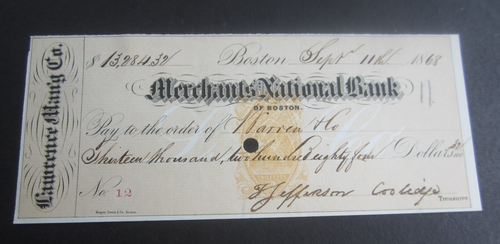 Lawrence Manfg Co.
$ 13,284 32/ Boston Sept 11th 1868
Merchants National Bank
OF BOSTON.
Pay to the order of Warren & Co
Thirteen thousand, two hundred eighty four 32/100 Dollars
No 12
T Jefferson Coolidge
TREASURER